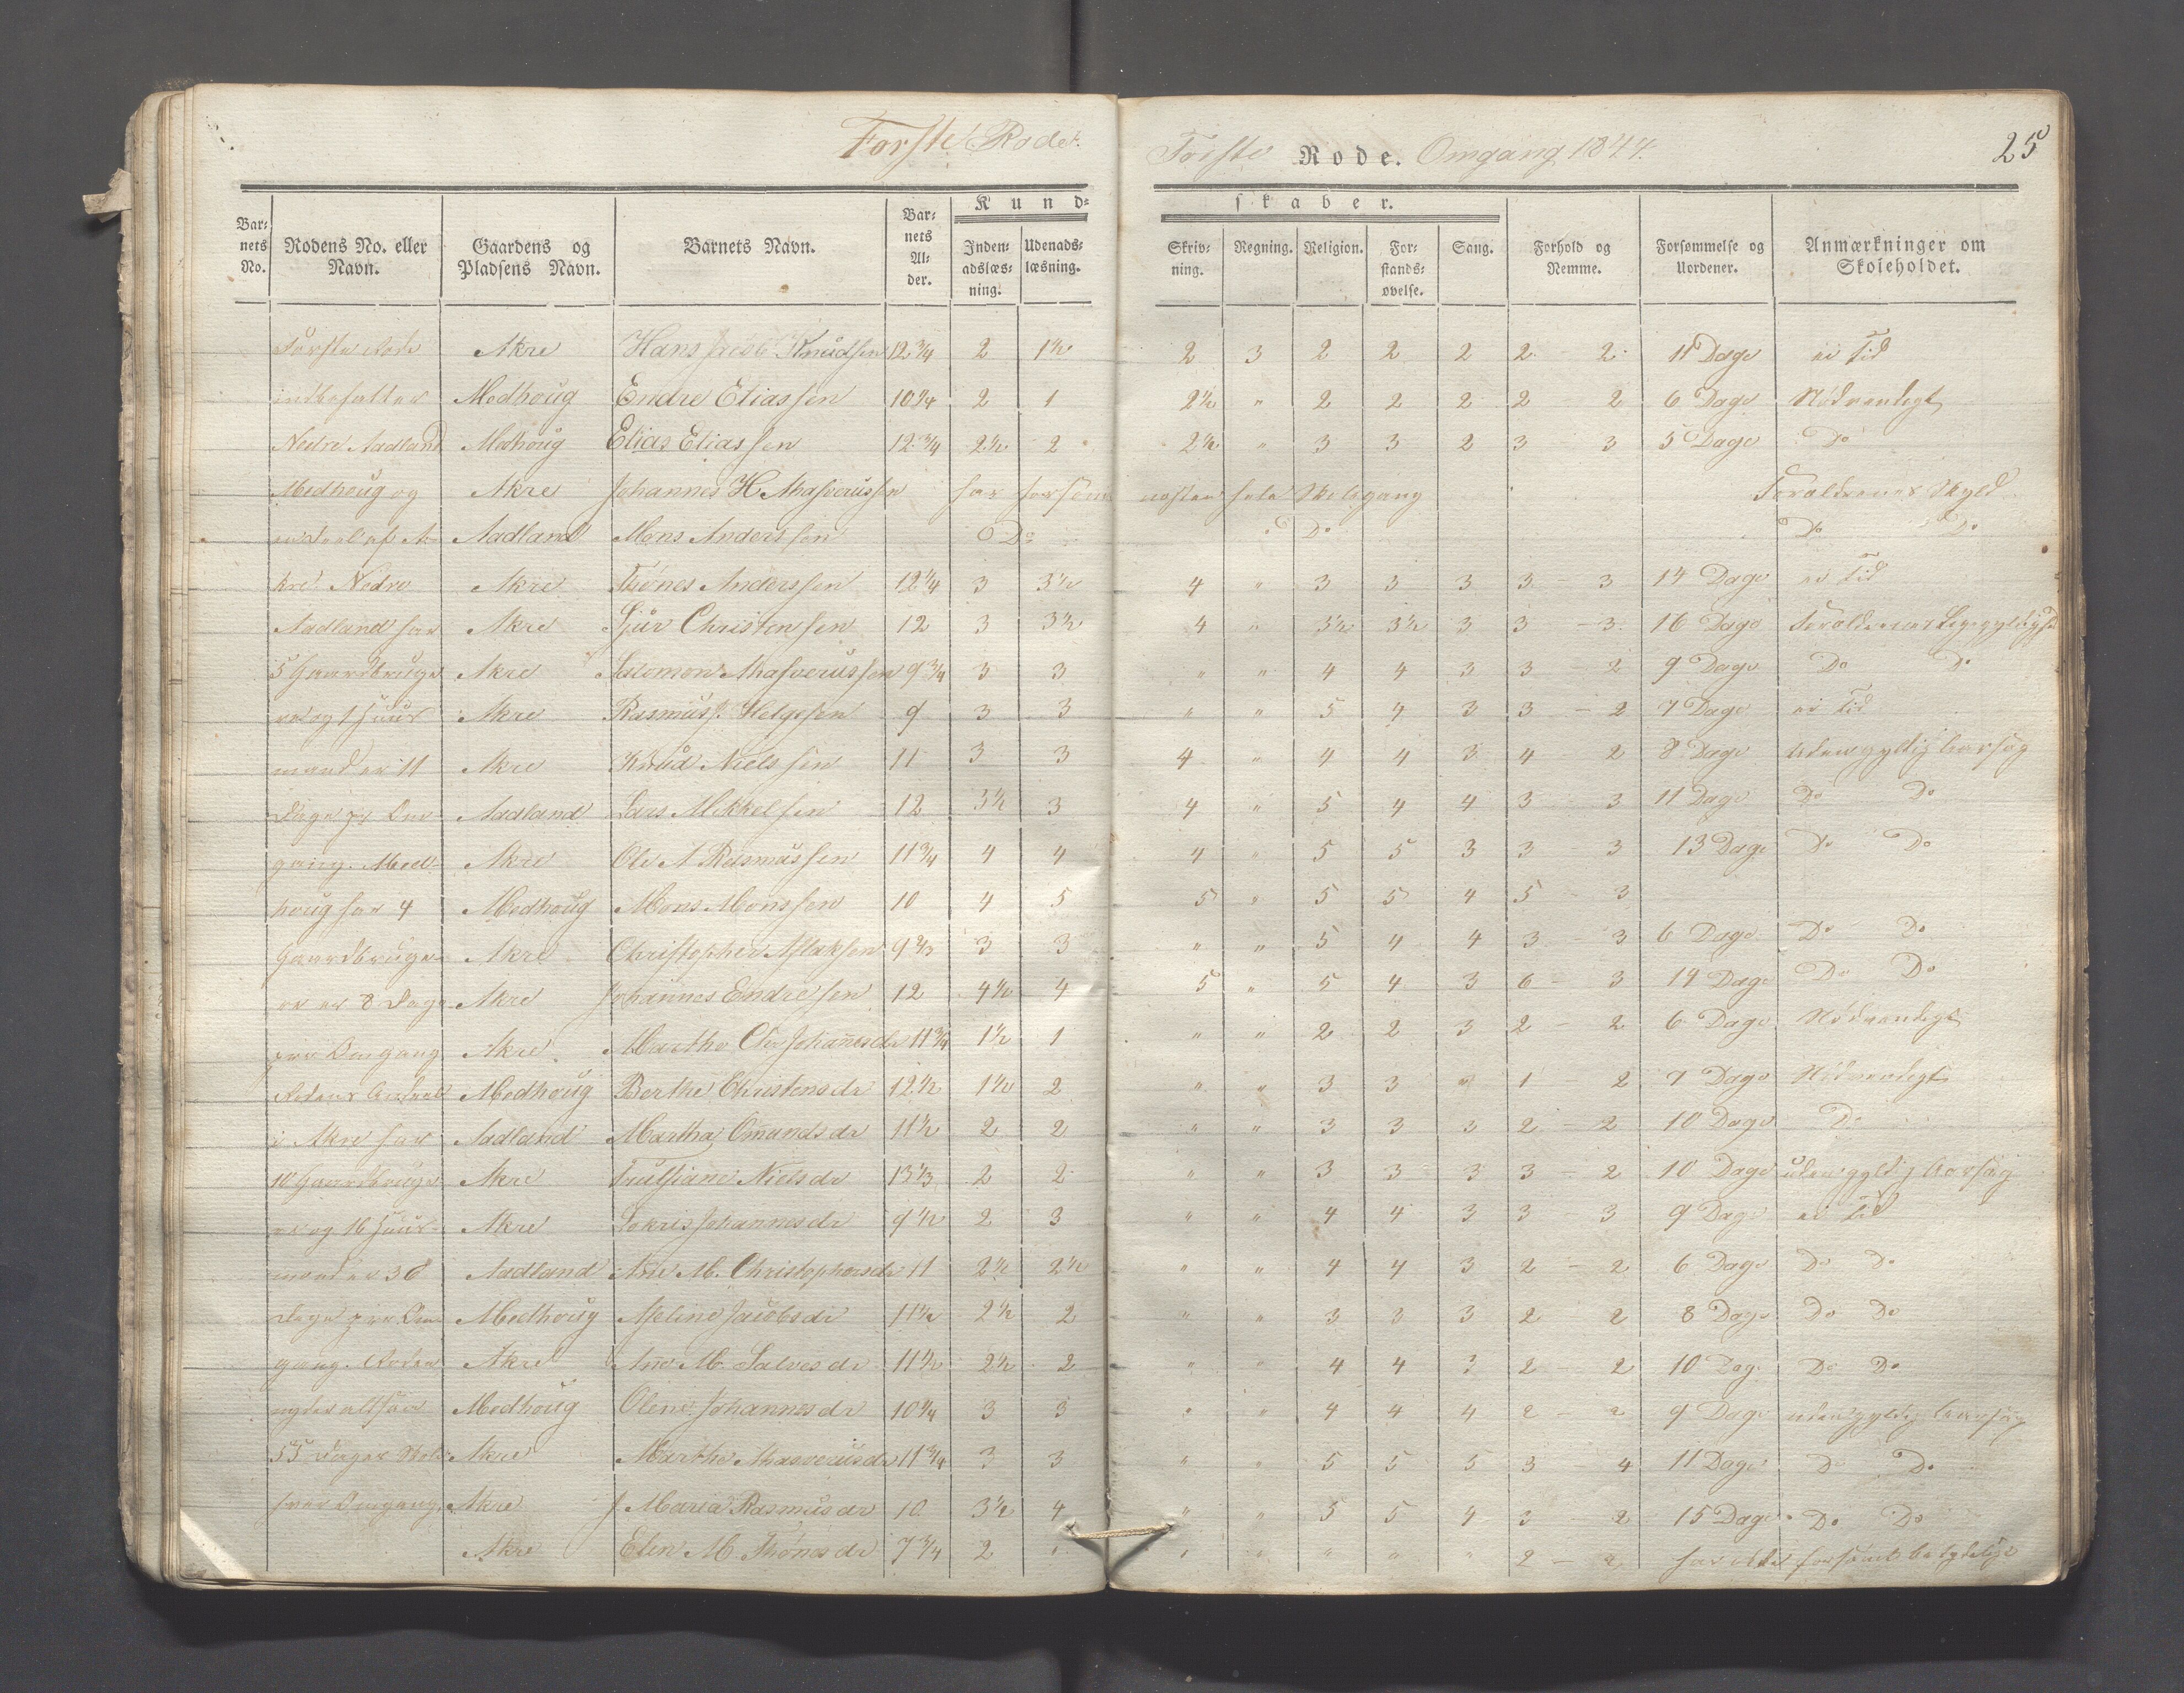 Forste Rodes.
Forste Rode. Omgang 1844.
25
Kund=
skaber.
Bar= nets No.
Rodens No. eller Navn.
Gaardens og Pladsens Navn.
Barnets Navn.
Bar= nets Al= der.
Inden= adslæs= ning.
Udenads= læsning.
Skriv= ning.
Regning.
Religion.
For= stands= øvelse.
Sang.
Forhold og Nemme.
Forsømmelse og Uordener.
Anmærkninger om Skoleholdet.
Første Rode Akre Hans Jacob Knudsen 12 3/4 2 1½ 2 3 2 2 2 2 - 2 11 Dage ei Tid
indbefatter Medhoug Endre Eliassen 10 1/4 2 1 2½ " 2 2 2 2 - 2 6 Dage Nødvendigt
Nedre Aadland Medhoug Elias Eliassen 12 3/4 2½ 2 2½ " 3 3 2 3 - 3 5 Dage Do
Medhoug og Akre Johannes H. Ahasverussen har forsømt næsten hele Skolegang Forældrenes Skyld
Aadland Mons Anderssen Do Do Do Do
kre. Nedre Akre Tønes Anderssen 12 1/4 3 3½ 4 " 3 3 3 3 - 3 14 Dage ei Tid
Aadland har Akre Sjur Christensen 12 3 3½ 4 " 3½ 3½ 3 3 - 3 16 Dage Forældrenes Ligegyldighed
5 Gaardbruge Akre Salomon Ahasverussen 9 3/4 3 3 " " 4 4 3 3 - 2 9 Dage Do Do
re og 1 Huus Akre Rasmus J. Helgesen 9 3 3 " " 5 4 3 3 - 2 7 Dage ei Tid
mand er 11 Akre Knud Nielssen 11 3 3 4 " 4 4 3 4 - 2 8 Dage Uden gyldig Aarsag
Dage pr Om Aadland Lars Mikkelsen 12 3½ 3 4 " 5 4 4 3 - 3 11 Dage Do Do
gang. Med Akre Ole A Rasmussen 11 3/4 4 4 4 " 5 5 3 3 - 3 13 Dage Do Do
houg har 4 Medhoug Mons Monssen 10 4 5 5 " 5 5 4 5 - 3
Gaardbruge Akre Christopher Aslaksen 9 2/3 3 3 " " 5 4 4 3 - 3 6 Dage Do Do
re er 8 Dage Akre Johannes Endresen 12 4½ 4 5 " 5 4 3 6 - 3 14 Dage Do Do
pro Omgang Akre Marthe Chr Johannesdr 11 3/4 1½ 1 " " 2 2 3 2 - 2 6 Dage Nødvendigt
Medhoug Berthe Christensdr 12½ 1½ 2 " " 3 3 " 1 2 7 Dage Nødvendigt
i Akre har Aadland Martha Omundsdr 11½ 2 2 " " 3 3 3 2 - 2 10 Dage Do
10 Gaardbruge Akre Trulsiane Nielsdr 13 1/3 2 2 " " 3 3 3 3 - 2 10 Dage uden gyldig Aarsag
re og 16 Huus Akre Sokris Johannesdr 9½ 2 3 " " 4 4 3 3 - 3 9 Dage ei Tid
mænd er 36 Aadland Ane M. Christophersdr 11 2½ 2½ " " 4 4 3 2 - 2 6 Dage Do Do
Dage pro Om Medhoug Aseline Jacobsdr 11½ 2½ 2 " " 3 3 3 2 2 8 Dage Do Do
gang. Roden Akre Ane M. Salvesdr 11½ 2½ 2 " " 4 4 3 2 - 2 10 Dage Do Do
nyder altsaa Medhoug Olene Johannesdr 10 1/4 3 3 " " 4 4 4 2 - 2 9 Dage uden gyldig Aarsag
55 Dages Skole Akre Marthe Ahasverusdr 11 3/4 3 3 " " 5 5 5 3 - 4 11 Dage Do Do
hver Omgang. Akre J Maria Rasmusdr 10 3½ 4 " " 5 5 4 3 - 2 15 Dage Do Do
Akre Elen M Thønesdr 7 3/4 2 " " " " " " 2 - 2 har ikke forsømt betydelige